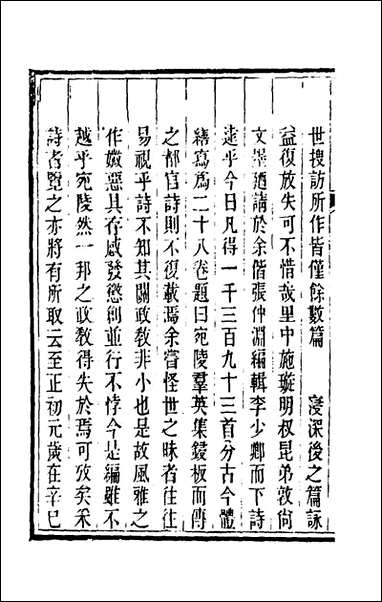 世搜訪所作皆僅餘數篇　　寖深後之篇詠
益復放失可不惜哉里中施璇明权昆弟敦尙
文墨廼請於余偕張仲淵編輯李少卿而下詩
逮乎今日凡得一千三百九十三首分古今體
繕寫爲二十八卷題曰宛陵羣英集鋟板而傳
之都官詩則不復載焉余嘗怪世之昧者往往
易視乎詩不知其關政敎非小也是故風雅之
作媺惡具存感發懲創並行不悖今是編雖不
越乎宛陵然一邦之政敎得失於焉可攷矣釆
詩者覽之亦將有所取云至正初元歲在辛巳